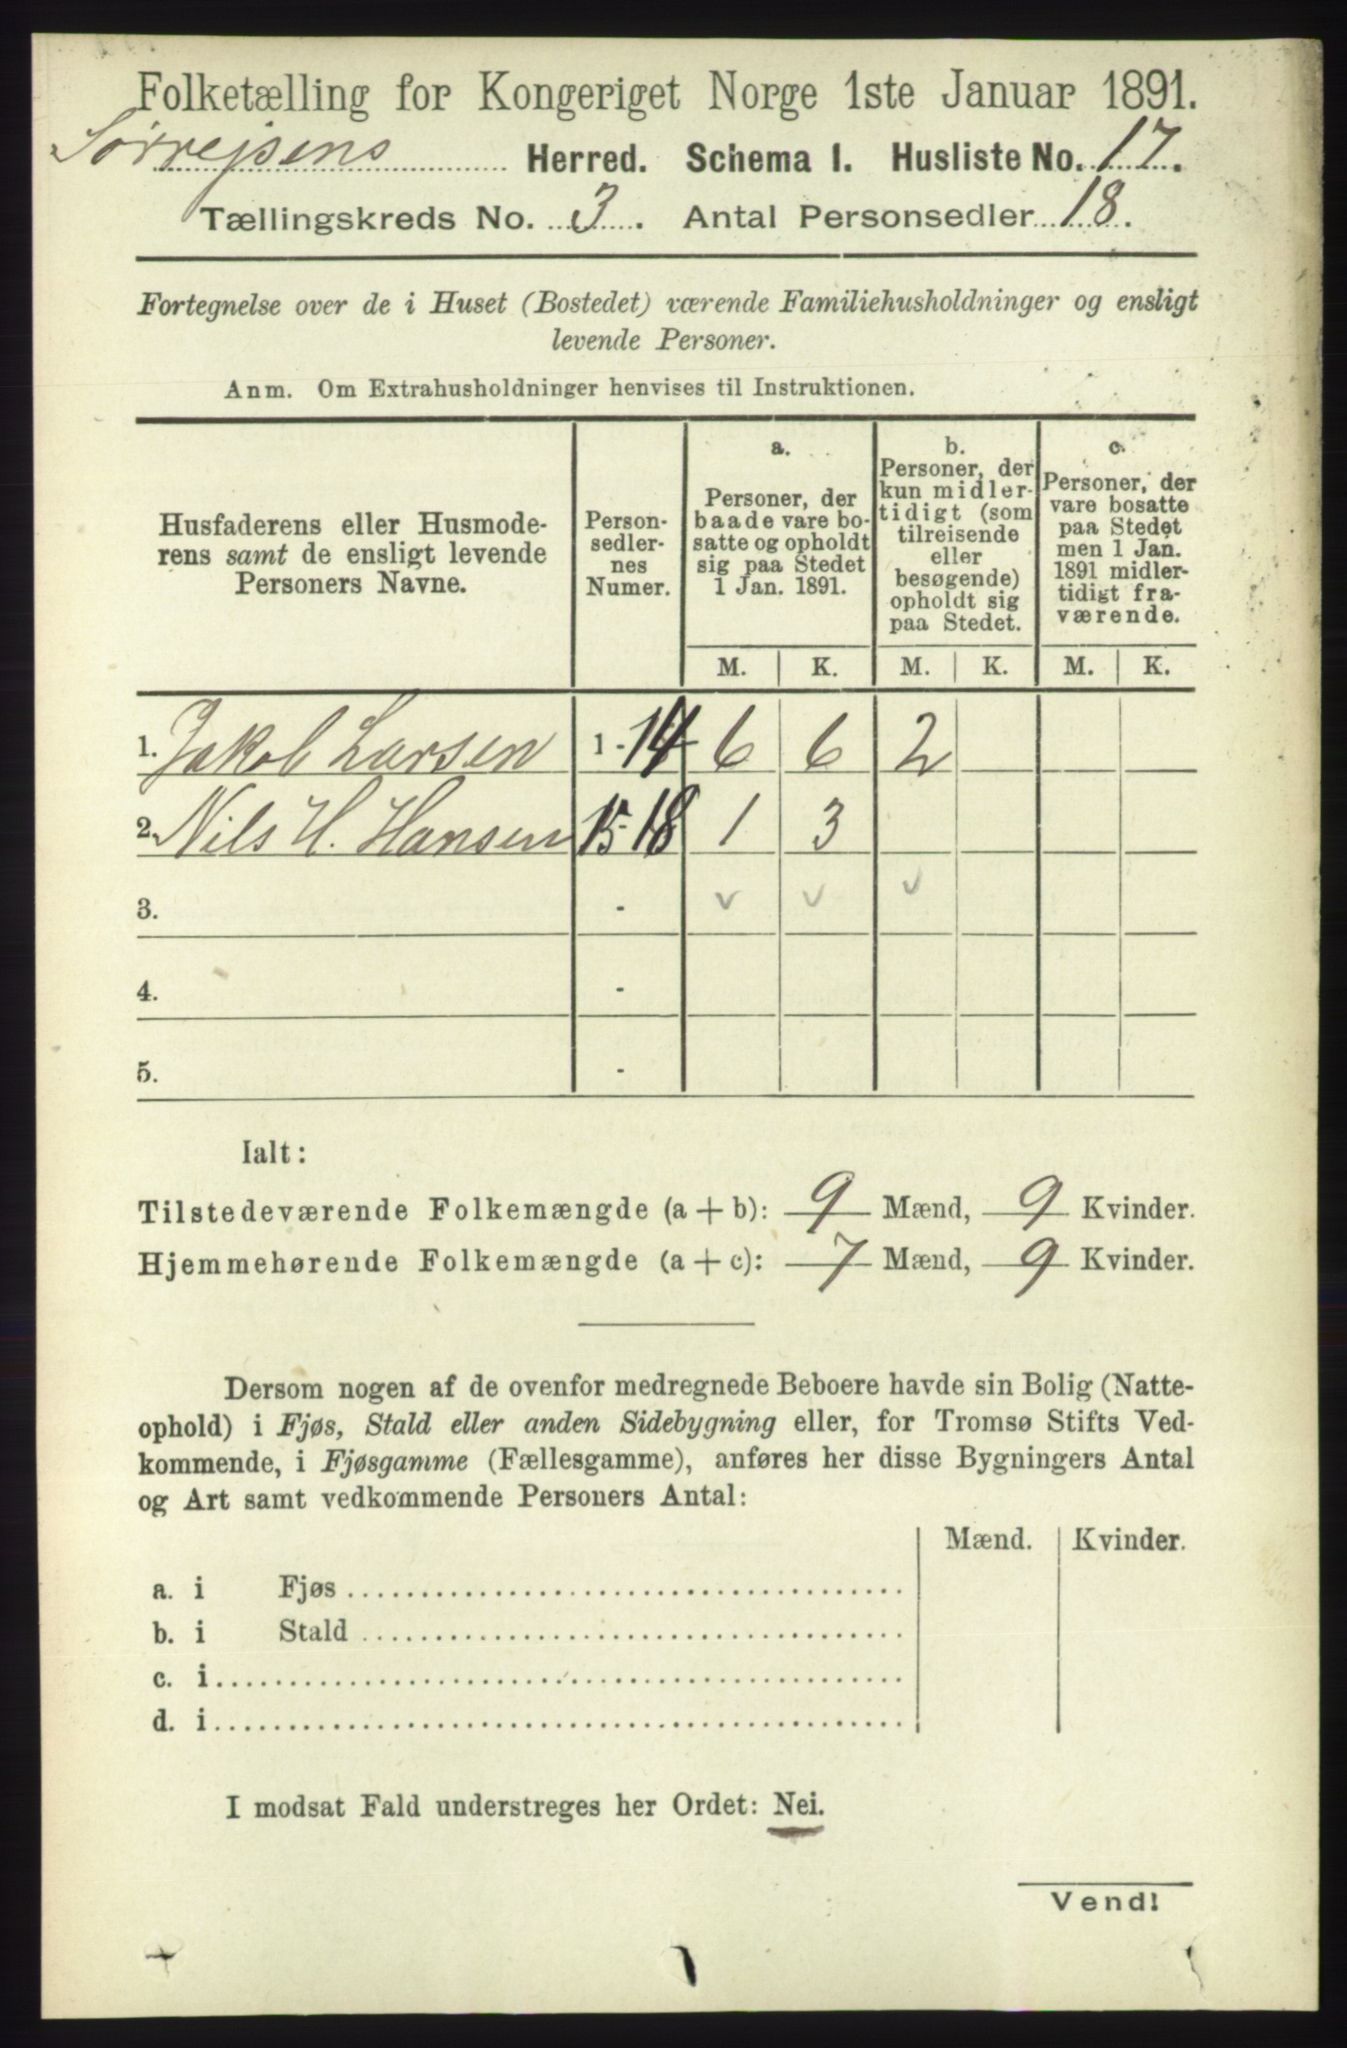 Folketælling for Kongeriget Norge 1ste Januar 1891.
Sørrejsens Herred. Schema I. Husliste No. 17.
Tællingskreds No. 3. Antal Personsedler 18.
Fortegnelse over de i Huset (Bostedet) værende Familiehusholdninger og ensligt
levende Personer.
Anm. Om Extrahusholdninger henvises til Instruktionen.
Husfaderens eller Husmode-
rens samt de ensligt levende
Personers Navne.
Person-
sedler-
nes
Numer.
a.
Personer, der
baade vare bo-
satte og opholdt
sig paa Stedet
1 Jan. 1891.
b.
Personer, der
kun midler-
tidigt (som
tilreisende
eller
besøgende)
opholdt sig
paa Stedet.
c.
Personer, der
vare bosatte
paa Stedet
men 1 Jan.
1891 midler-
tidigt fra-
værende.
M. K. M. K. M. K.
1. Jakob Larsen 1 - 14 6 6 2
2. Nils H. Hansen 15 - 18 1 3
3. - v v v
4. -
5. -
Ialt:
Tilstedeværende Folkemængde (a + b): 9 Mænd, 9 Kvinder.
Hjemmehørende Folkemængde (a + c): 7 Mænd, 9 Kvinder.
Dersom nogen af de ovenfor medregnede Beboere havde sin Bolig (Natte-
ophold) i Fjøs, Stald eller anden Sidebygning eller, for Tromsø Stifts Ved-
kommende, i Fjøsgamme (Fællesgamme), anføres her disse Bygningers Antal
og Art samt vedkommende Personers Antal:
Mænd. Kvinder.
a. i Fjøs
b. i Stald
c. i
d. i
I modsat Fald understreges her Ordet: Nei.
Vend!